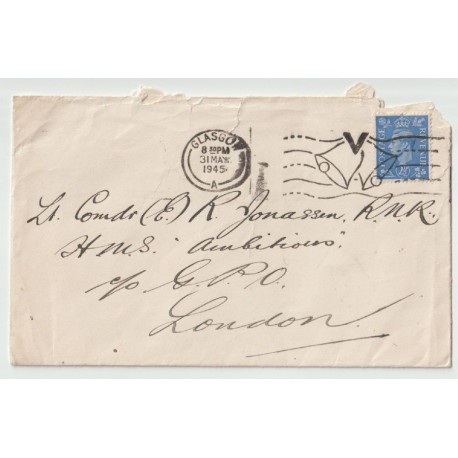 GLASGOW
8 30PM
31 MAY
1945
A
V
POSTAGE REVENUE
2½D
Lt. Comdr (E) R. Jonassen, R.N.R.
H.M.S. "Ambitious"
c/o G.P.O.
London.